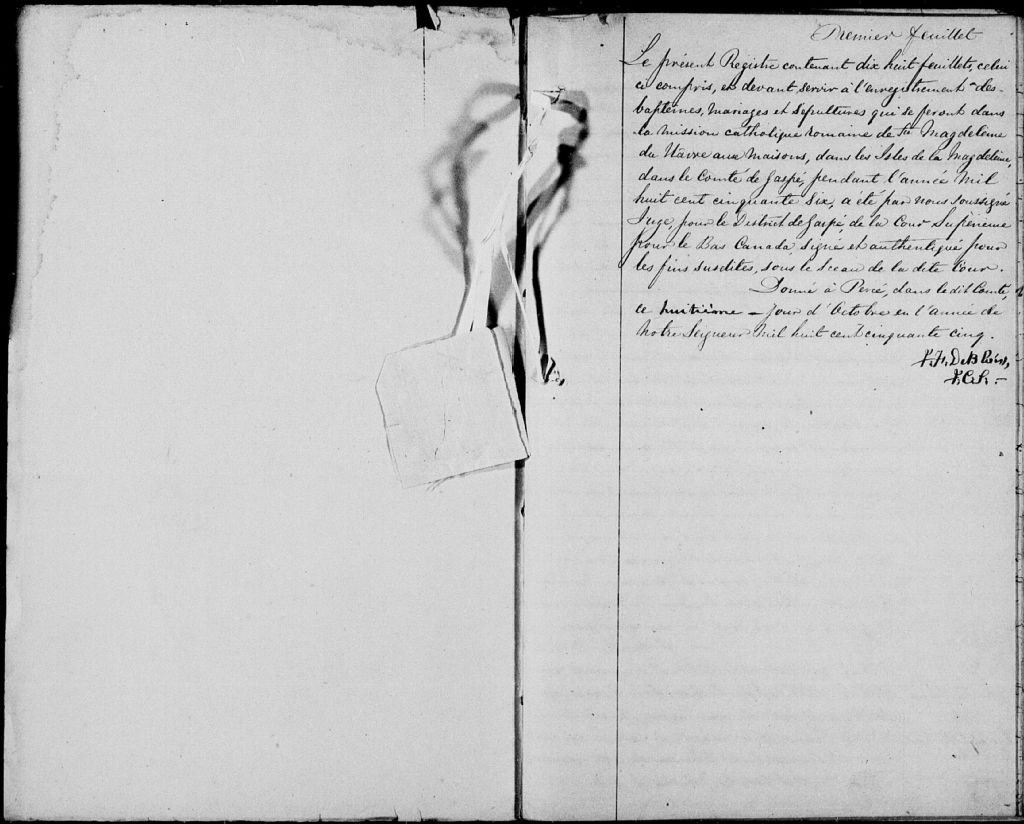 Premier feuillet
Le présent Registre contenant dix huit feuillets, celui
ci compris, et devant servir à l'enregistrement des
baptêmes, mariages et sépultures qui se feront dans
la mission catholique romaine de Ste Magdeleine
du Hâvre aux Maisons, dans les Isles de la Magdeleine,
dans le Comté de Gaspé, pendant l'année Mil
huit cent cinquante six, a été par nous soussigné
Juge, pour le District de Gaspé, de la Cour Supérieure
pour le Bas Canada, signé et authentiqué pour
les fins susdites, sous le Sceau de la dite Cour.
Donné à Percé, dans le dit Comté,
ce huitième jour d'Octobre en l'année de
Notre Seigneur Mil huit cent cinquante cinq.
DeBlois,